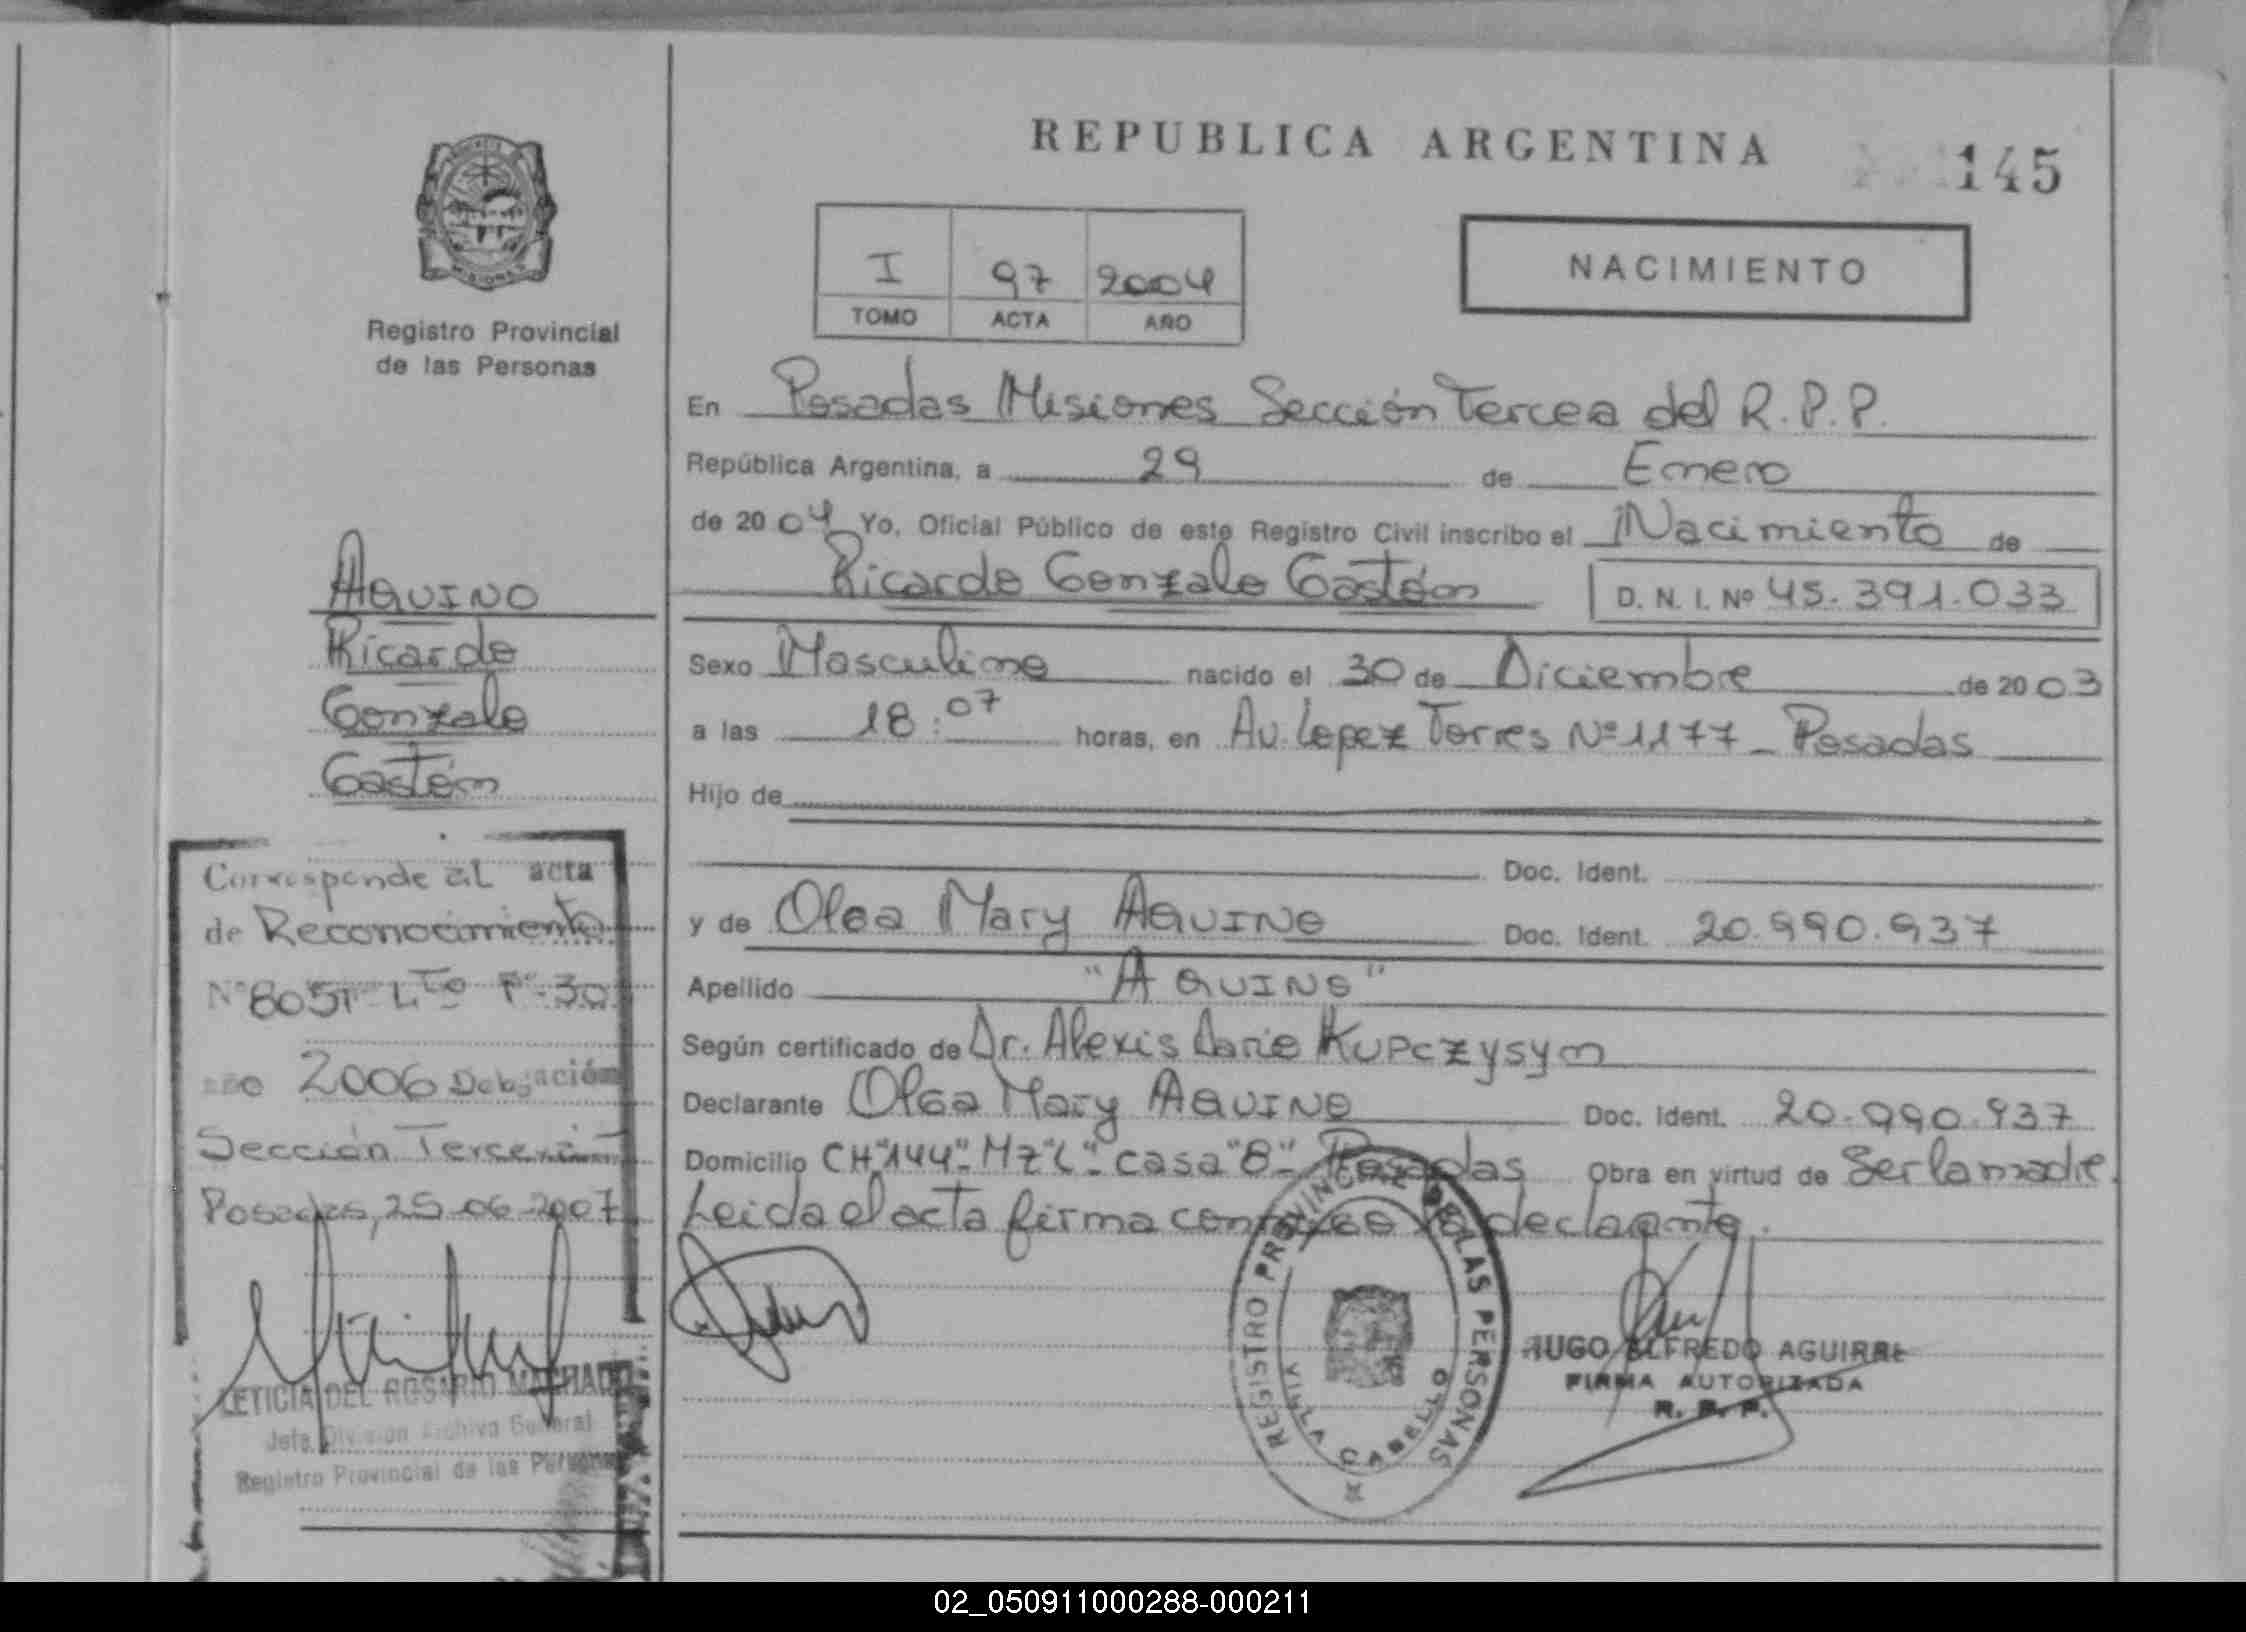 REPUBLICA ARGENTINA
145
Registro Provincial
de las Personas
I 97 2004
TOMO ACTA AÑO
NACIMIENTO
En Posadas Misiones Sección Tercea del R.P.P.
República Argentina, a 29 de Enero
de 2004 Yo, Oficial Público de este Registro Civil inscribo el Nacimiento de
Ricardo Gonzalo Gastón D. N. I. Nº 45.391.033
Sexo Masculino nacido el 30 de Diciembre de 2003
a las 18:07 horas, en Av. Lopez Torres Nº 1177 - Posadas
Hijo de
Doc. Ident.
y de Olga Mary AQUINO Doc. Ident. 20.990.937
Apellido "AQUINO"
Según certificado de Dr. Alexis Dario Kupczysyn
Declarante Olga Mary AQUINO Doc. Ident. 20.990.937
Domicilio CH"144"- Mz"L"- casa"8"- Posadas Obra en virtud de Ser la madre.
Leida el acta firma conmigo la declaante.
AQUINO
Ricardo
Gonzalo
Gastón
Corresponde al acta
de Reconocimiento
Nº 8051 Lº Tº Fº 30
año 2006 Delegación
Sección Tercera
Posadas, 25-06-2007
LETICIA DEL ROSARIO MACHADO
Jefa División Archivo General
Registro Provincial de las Personas
REGISTRO PROVINCIAL DE LAS PERSONAS
VILLA CABELLO
HUGO ALFREDO AGUIRRE
FIRMA AUTORIZADA
R. P. P.
02_050911000288-000211